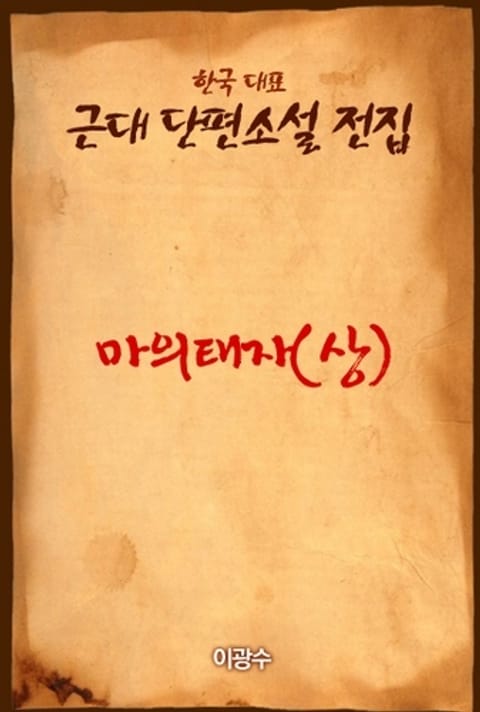 한국 대표
근대 단편소설 전집
마의태자(상)
이광수